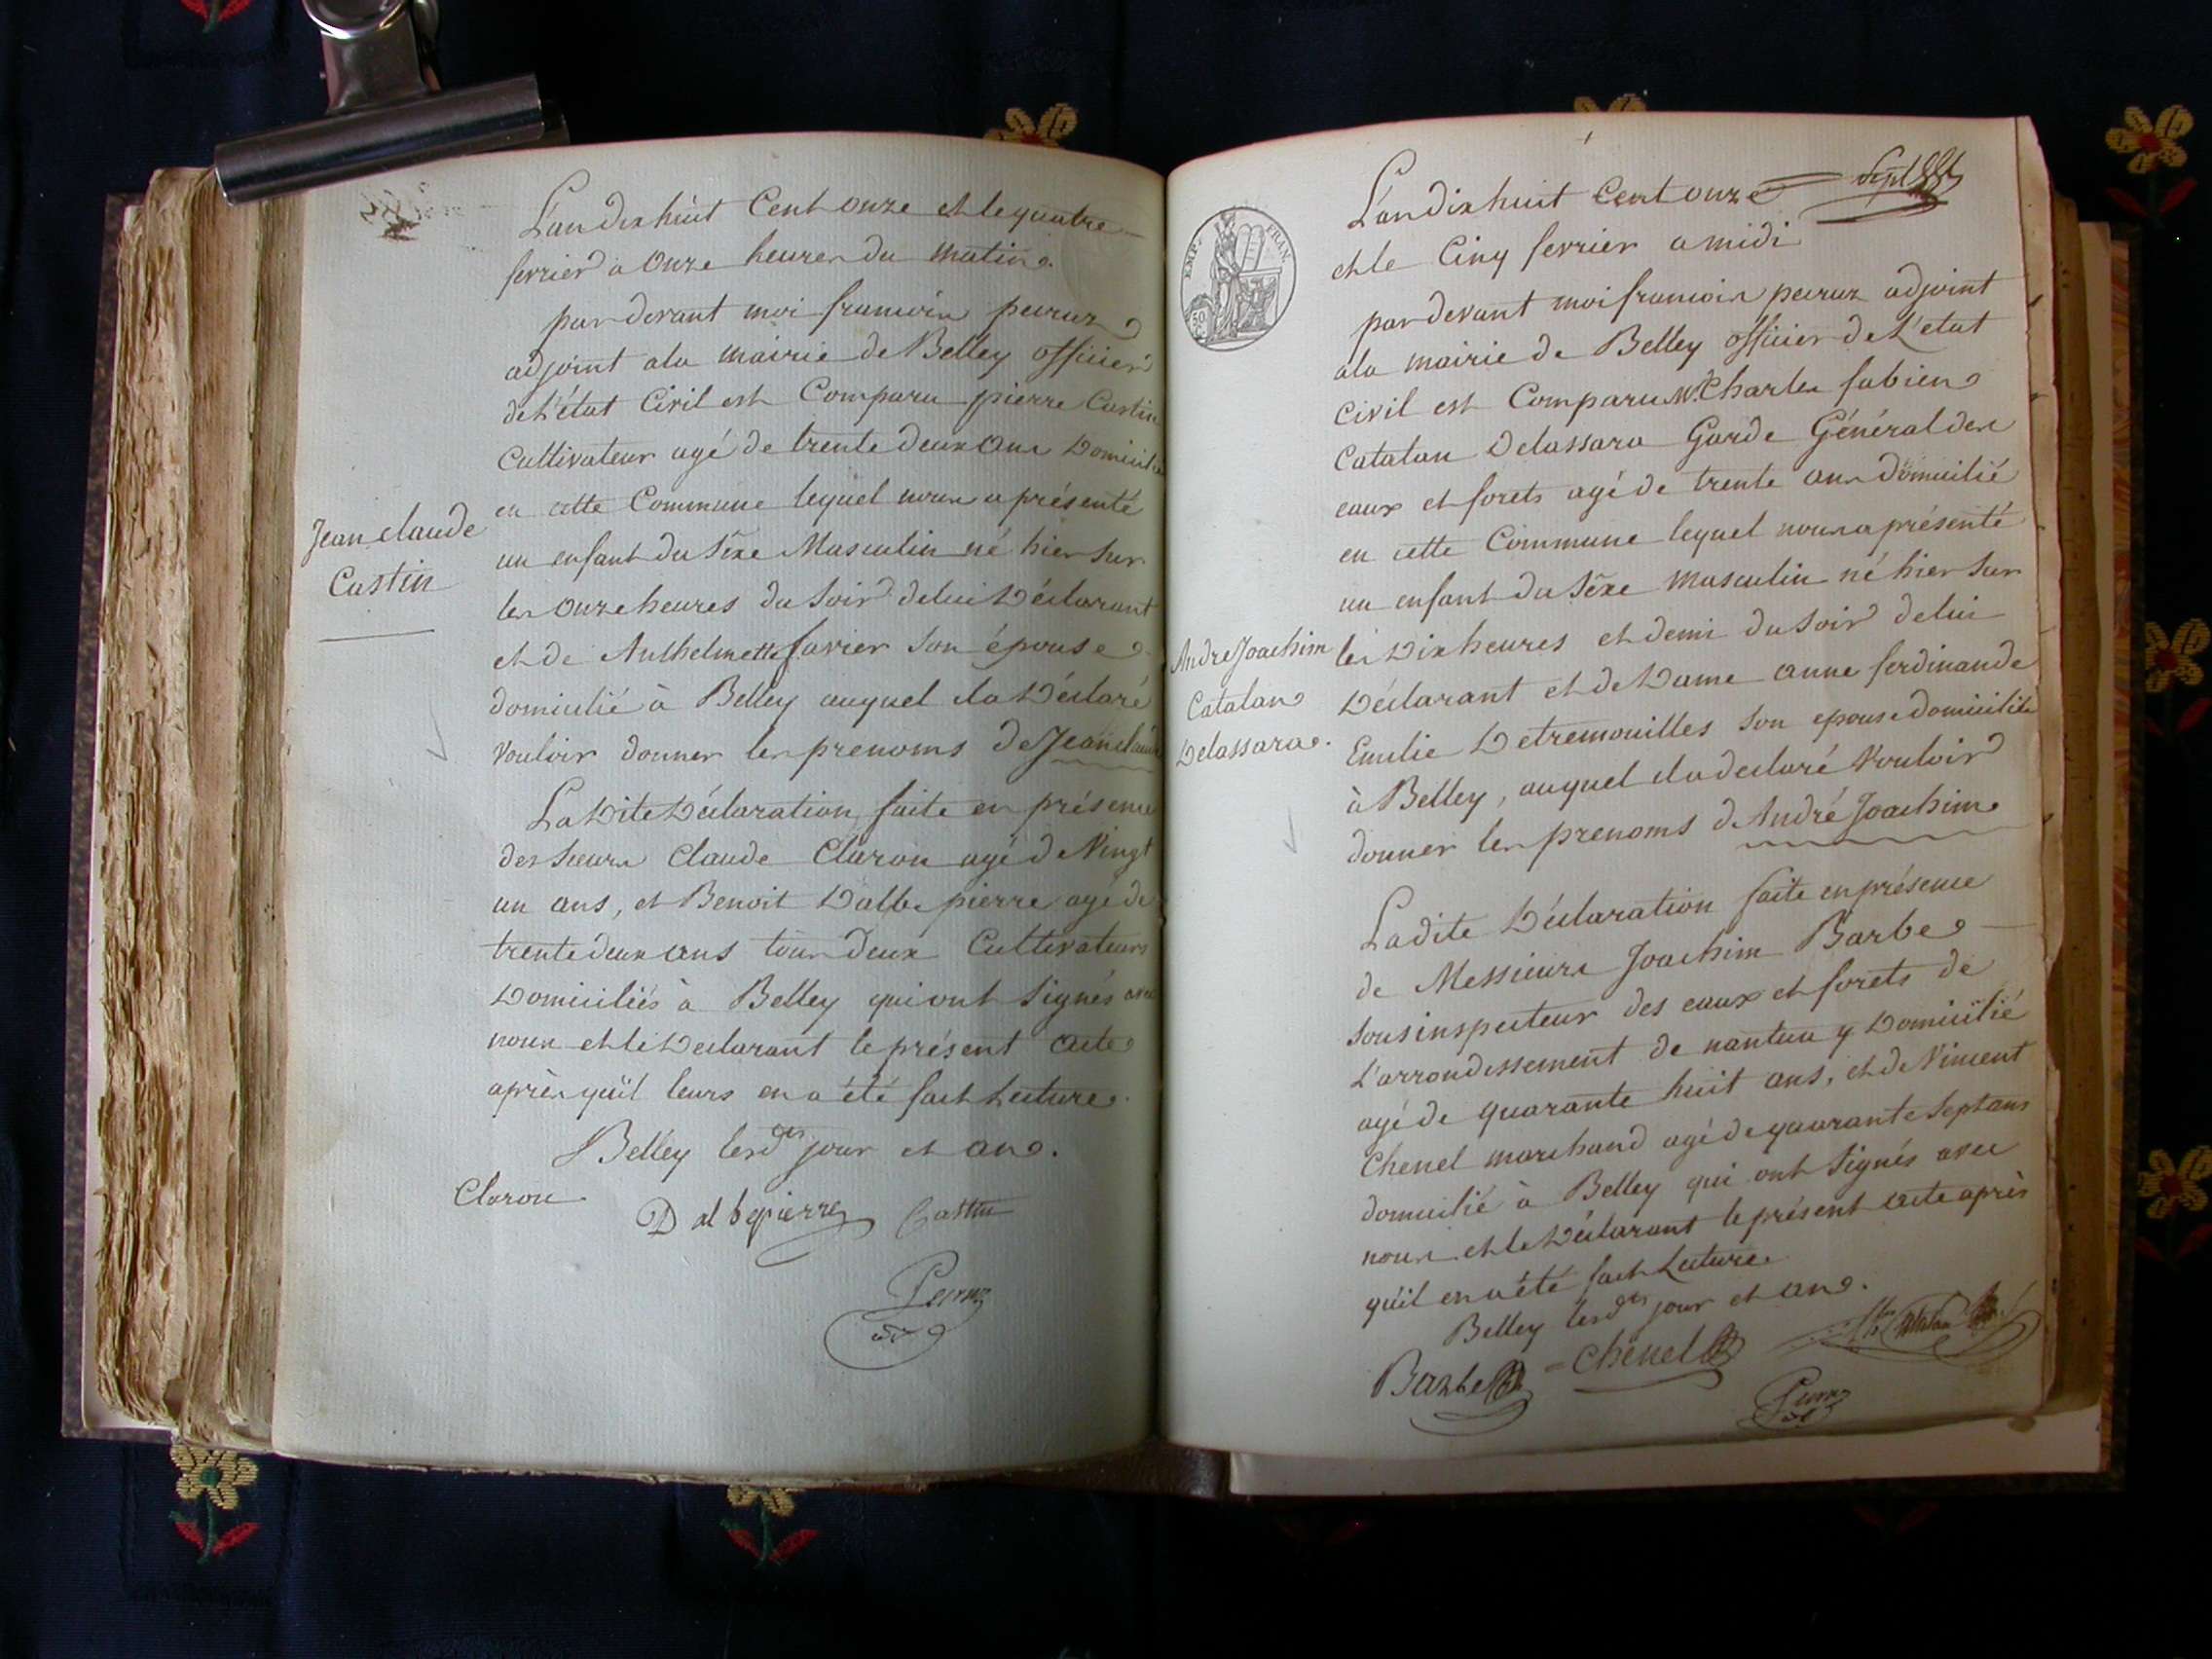 L'an dix huit Cent onze et le quatre
fevrier a Onze heures du matin.
par devant moi francois peuruz
adjoint ala mairie de Belley officier
de l'état Civil est Comparu pierre Castin
Cultivateur agé de trente deux Ans Domicilié
en cette Commune lequel nous a présenté
un enfant du Sèxe Masculin né hier sur
les Onze heures du Soir de lui Déclarant
et de Anthelmette favier son épouse
domicilié à Belley auquel ila Déclaré
vouloir donner les prenoms de Jean claude
La Dite Déclaration faite en présence
des sieurs Claude Claron agé de Vingt
un ans, et Benoit Dalbepierre agé de
trente deux ans tous Deux Cultivateurs
Domiciliés à Belley qui ont Signés avec
nous et le Declarant le présent Acte
après qu'il leurs en a été fait Lecture.
Belley lesd. jour et an.
Claron
Dalbepierre Castin
Jean claude
Castin
Sept
EMP. FRAN.
50
L'an dix huit Cent onze
et le Cinq fevrier a midi
par devant moi francois peuruz adjoint
ala mairie de Belley officier de L'etat
Civil est Comparu M. Charles fabien
Catalan Delassara Garde Général des
eaux et forets agé de trente ans domicilié
en cette Commune lequel nous a présenté
un enfant du Sèxe Masculin né hier sur
les Dix heures et demi du Soir de lui
Déclarant et de Dame anne ferdinande
Emilie Detremouilles son epouse domicilité
à Belley, auquel ila declaré Vouloir
donner les prenoms d'André Joachim
Ladite Déclaration faite en présence
de Messieurs Joachim Barbe
sous inspecteur des eaux et forets de
L'arrondissement de nantua y Domicilié
agé de quarante huit ans, et de Vincent
Chenel marchand agé de quarante Sept ans
domicilié à Belley qui ont Signés avec
nous et le Déclarant le présent acte après
qu'il en a été fait Lecture.
Belley lesd. jour et an.
Barbe Chenel Catalan
Andre Joachim
Catalan
Delassara.